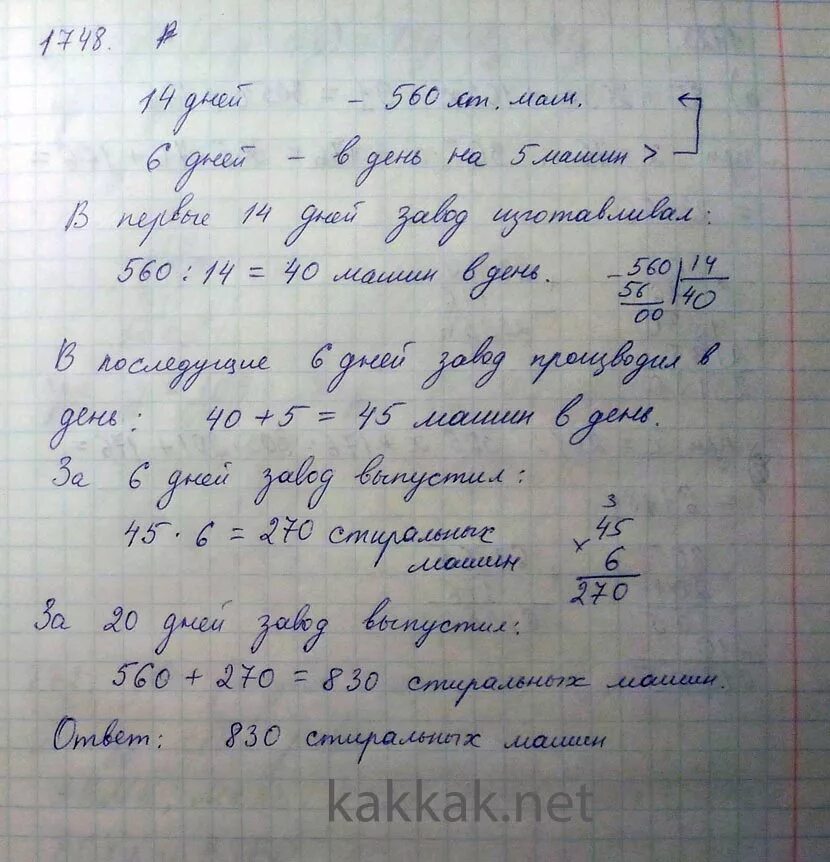 1748. Р
14 дней - 560 ст. маш.
6 дней - в день на 5 машин >
В первые 14 дней завод изготавливал:
560 : 14 = 40 машин в день.
- 560 | 14
56 | 40
00
В последущие 6 дней завод производил в
день: 40 + 5 = 45 машин в день.
За 6 дней завод выпустил:
45 · 6 = 270 стиральных
машин
3
45
× 6
270
За 20 дней завод выпустил:
560 + 270 = 830 стиральных машин.
Ответ: 830 стиральных машин
kakkak.net